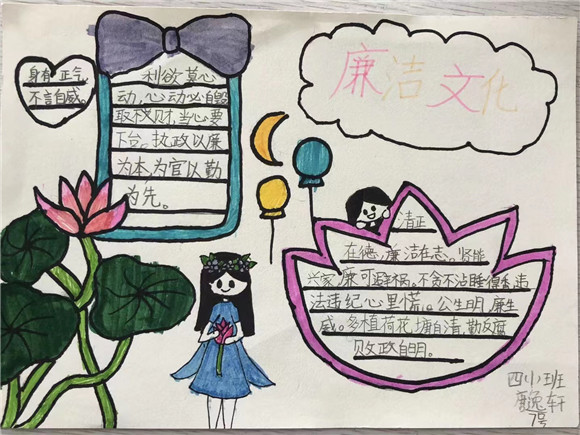 廉洁文化
身有正气，
不言自威。
利欲莫心
动，心动必自毁
取不义财，当心要
下台。执政以廉
为本，为官以勤
为先。
清正
在德，廉洁在志。坚能
兴家，廉可避祸。不贪不沾睡得香，违
法违纪心里慌。公生明，廉生
威。多植荷花塘自清，勤反腐
败政自明。
四小班
逸轩
7号